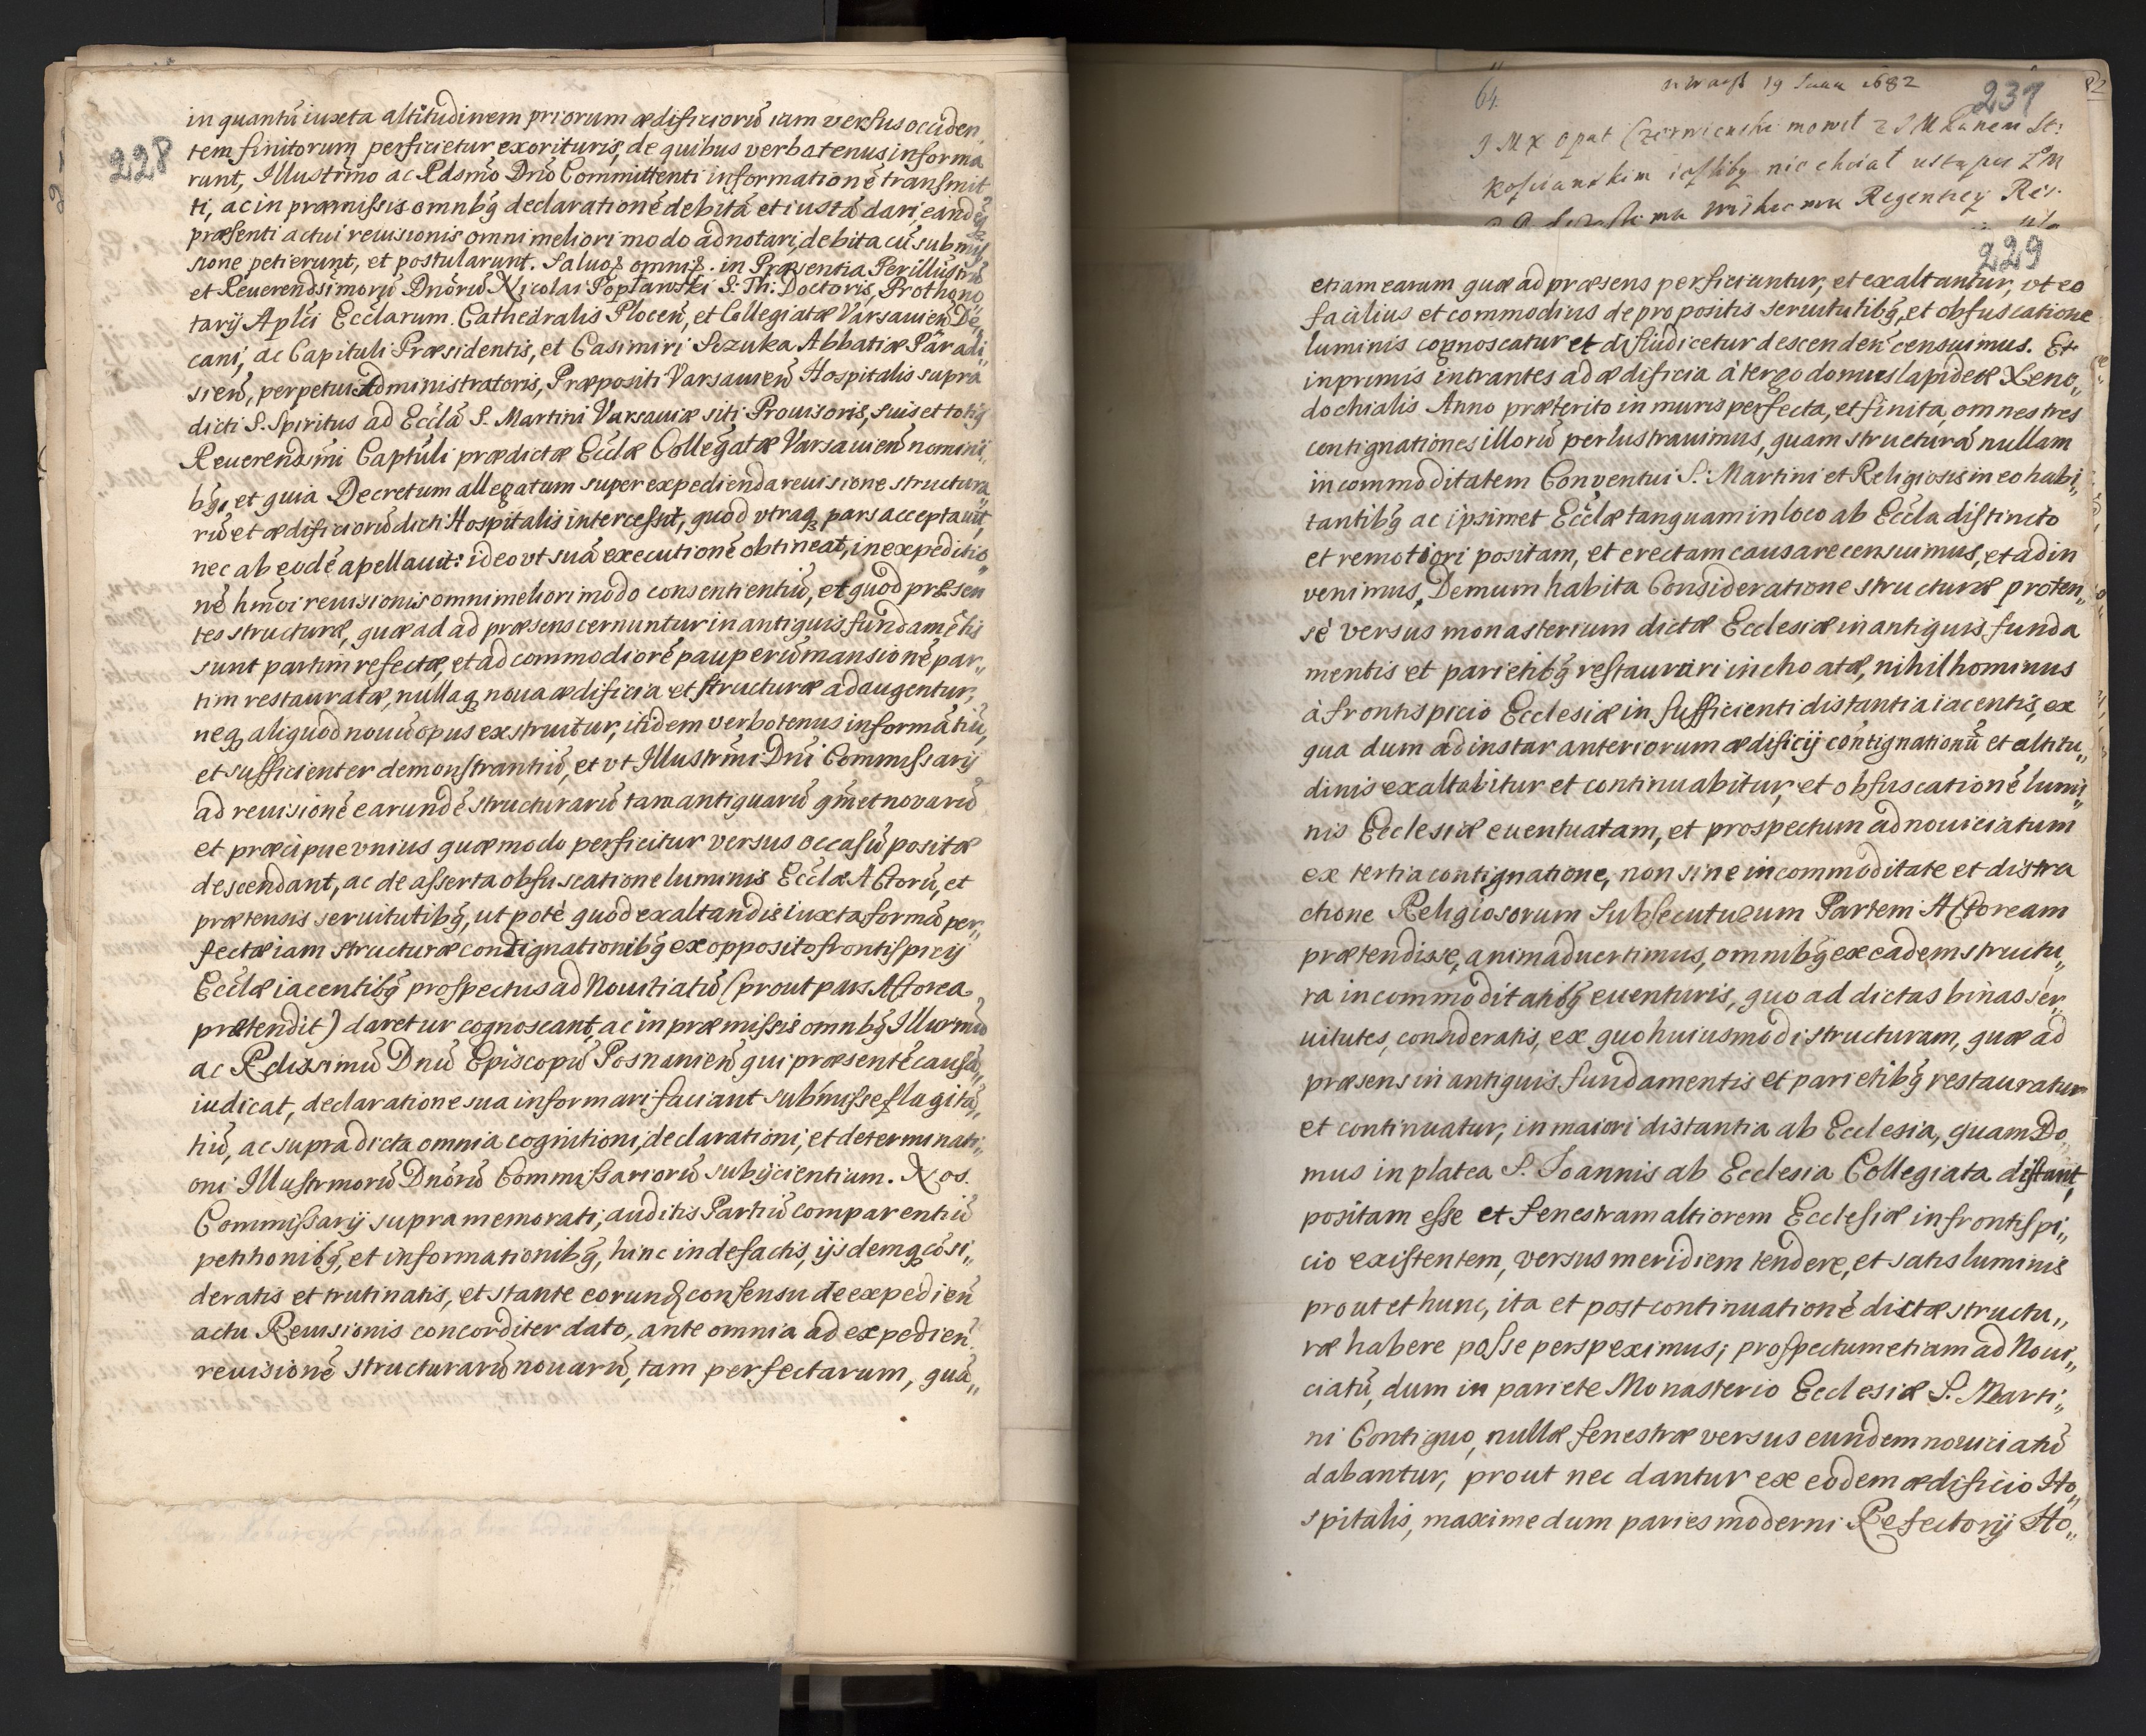 228
in quantũ iuxta altitudinem priorum ædificiorũ iam versus occiden„
tem finitorum perficietur exorituris, de quibus verbotenus informa
runt, Illustrmo ac Rdsmo Dno Committenti informationẽ transmit
ti, ac in præmissis omnbq declarationẽ debitã et iustã dari, eandẽq
præsenti actui reuisionis omni meliori modo adnotari, debita cũ submis
sione petierunt, et postularunt. Saluo omni. in Præsentia Perillustriũ
et Reuerendsimorũ Dnorũ Nicolai Popławski S: Th: Doctoris, Prothono„
tarij Aplici Ecclarum Cathedralis Plocen, et Collegiatæ Varsauien De„
cani, ac Capituli Præsidentis, et Casimiri Sczuka Abbatiæ Paradi„
sien, perpetui Administratoris, Præpositi Varsauien Hospitalis supra
dicti S. Spiritus ad Ecclã S. Martini Varsauiæ siti Prouisoris, suis et totiq
Reuerendsmi Captuli prædictæ Ecclæ Collegatæ Varsauien nomini„
bq, et quia Decretum allegatum super expedienda reuisione structura„
rũ et ædificiorũ dicti Hospitalis intercessit, quod vtraq pars acceptauit,
nec ab eodẽ apellauit: ideo vt suã executionẽ obtineat, in expeditio„
nẽ hmoi reuisionis omni meliori modo consentientiũ, et quod præsen
tes structuræ, quæ ad ad præsens cernuntur in antiquis fundamẽtis
sunt partim refectæ, et ad commodiorẽ pauperiũ mansionẽ par„
tim restauratæ, nullaq noua ædificia et structuræ adaugentur,
neq aliquod nouũ opus exstruitur, itidem verbotenus informãtiũ,
et sufficienter demonstrantiũ, et vt Illustrmi Dni Commissarij
ad reuisionẽ earundẽ structurarũ tam antiquarũ qm et novarũ
et præcipue vnius quæ modo perficitur versus occasũ positæ
descendant, ac de asserta obfuscatione luminis Ecclæ Actorũ, et
prætensis seruitutibq, ut potè quod exaltandis iuxta formã per„
fectæ iam structuræ contignationibq ex opposito frontispicij
Ecclæ iacentibq prospectus ad Nouitiatũ (prout pars Actorea
prætendit) daretur cognoscant, ac in præmissis omnbq Illusrmũ
ac Rdissimũ Dnũ Episcopũ Posnanien qui præsentẽ causã„
iudicat, declaratione sua informari faciant submisse flagitã„
tiũ, ac supradicta omnia cognitioni, declarationi, et determinati„
oni Illustrmorũ Dnorũ Commissariorũ subijcientium. Nos.
Commissarij supra memorati, auditis Partiũ comparentiũ
petitionibq, et informationibq, hinc inde factis, ijsdemq cõsi„
deratis et trutinatis, et stante eorund consensu de expedien
actu Reuisionis concorditer dato, ante omnia ad expedien
reuisionẽ structurarũ nouarũ, tam perfectarum, quã„
64.
19 1682
237
I M X opat Czerwienski mowil z I M Panem St:
Kosciańskim iesliby nie chciał ustąpic
Regentiey
229
etiam earum quæ ad præsens perficiuntur, et exaltantur, vt eo
facilius et commodius de propositis seruitutibq, et obfuscatione
luminis cognoscatur et disiudicetur descenden censuimus. Et
inprimis intrantes ad ædificia à tergo domus lapideæ Xeno„
dochialis Anno præterito in muris perfecta, et finita, omnes tres
contignationes illorũ perlustrauimus, quam structurã nullam
incommoditatem Conventui S: Martini et Religiosis in eo habi„
tantibq ac ipsimet Ecclæ tanquam in loco ab Eccla distincto
et remotiori positam, et erectam causare censuimus, et adin
venimus, Demum habita Consideratione structuræ proten„
sè versus monasterium dictæ Ecclesiæ in antiquis funda
mentis et parietibq restaurari inchoatæ, nihilhominus
à frontispicio Ecclesiæ in sufficienti distantia iacentis, ex
qua dum ad instar anteriorum ædificij cõntignationũ et altitu„
dinis exaltabitur et continuabitur, et obfuscationẽ lumi„
nis Ecclesiæ euentuatam, et prospectum ad nouiciatum
ex tertia contignatione, non sine incommoditate et distra
ctione Religiosorum subsecuturum Partem Actoream
prætendisse, animaduertimus, omnibq ex eadem structu„
ra incommoditatibq euenturis, quo ad dictas binas ser„
uitutes, consideratis, ex quo huiusmodi structuram, quæ ad
præsens in antiquis fundamentis et parietibq restauratur
et continuatur, in maiori distantia ab Ecclesia, quam Do„
mus in platea S. Ioannis ab Ecclesia Collegiata distant,
positam esse et fenestram altiorem Ecclesiæ in frontispi„
cio existentem, versus meridiem tendere, et satis luminis
prout et hunc, ita et post continuationẽ dictæ structu„
ræ habere posse perspeximus; prospectum etiam ad Noui„
ciatũ, dum in pariete Monasterio Ecclesiæ S. Marti„
ni Contiguo, nullæ fenestræ versus eundem nouiciatũ
dabantur, prout nec dantur ex eodem ædificio Ho„
spitalis, maxime dum paries moderni Refectorij Ho„